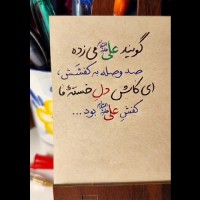 گویند علی می زده
صد وصله به کفشش،
ای کاش دل خستهٔ ما
کفش علی بود...